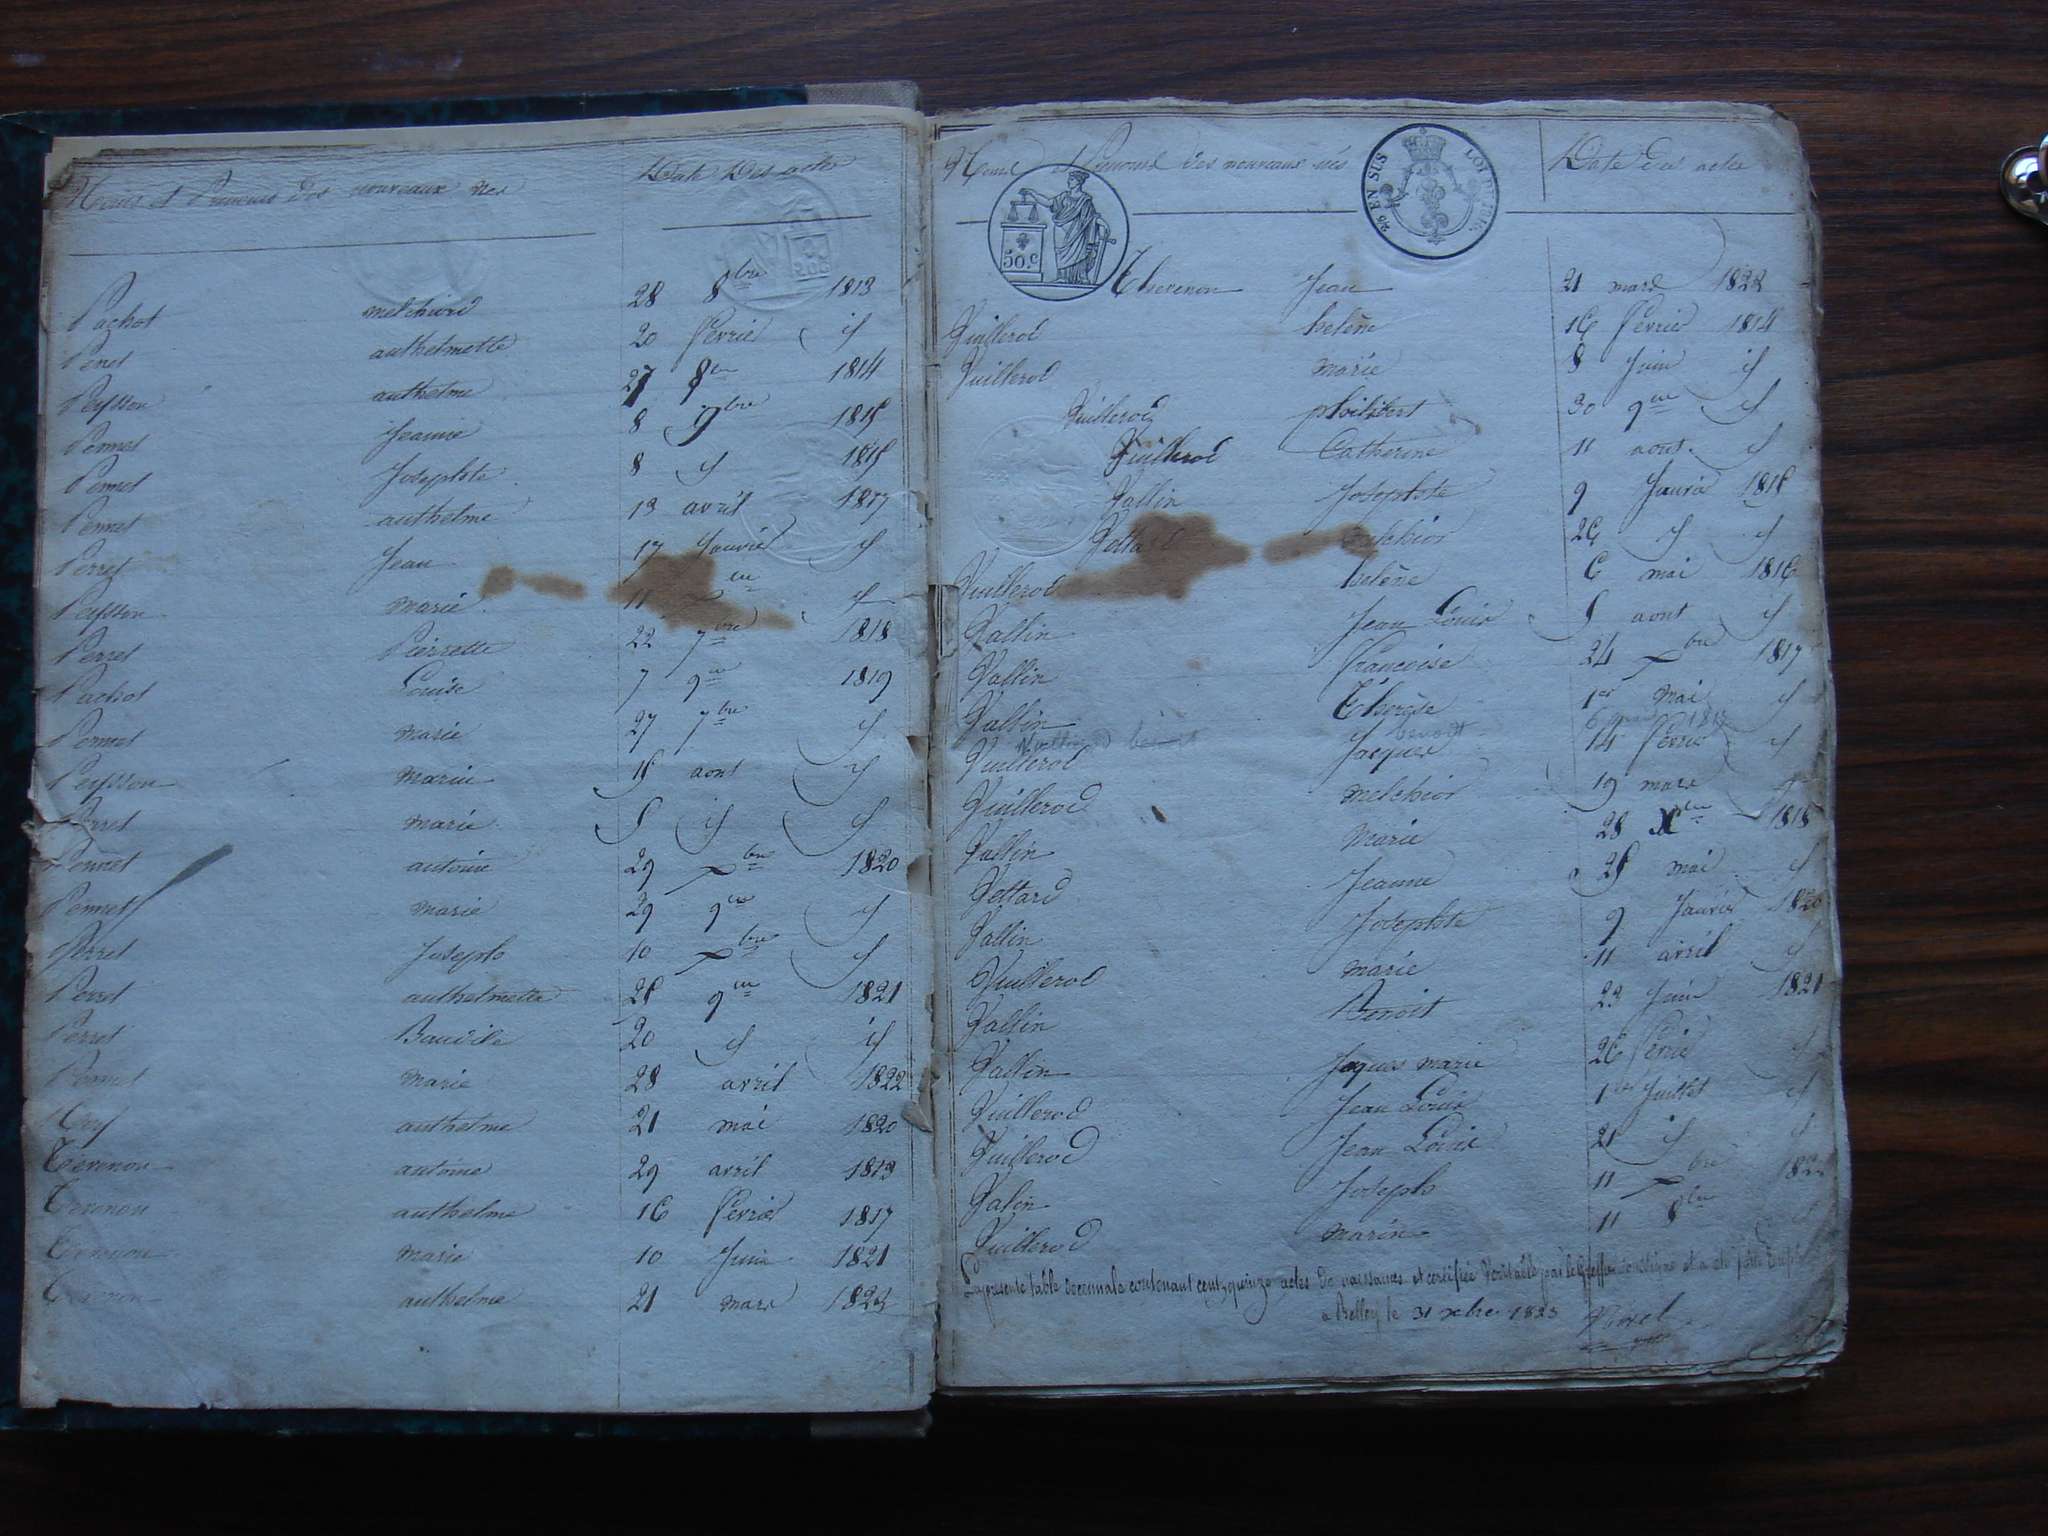 Noms et Prenoms des nouveaux nes Date Des actes
Pachot melchiord 28 8bre 1813
Penet anthelmette 20 fevrier id
Peysson anthelme 27 8bre 1814
Pennet Jeanne 8 9bre 1815
Pennet Josephte 8 id 1815
Pennet anthelme 13 avril 1817
Perret Jean 17 Janvier id
Peysson marie 11 id
Perret Pierrette 22 7bre 1818
Pachot Louise 7 9bre 1819
Pennet marie 27 7bre id
Peysson marie 15 aout id
Perret marie 5 id id
Pennet antoine 29 xbre 1820
Pennet marie 29 9bre id
Perret Joseph 10 xbre id
Perret anthelmette 25 9bre 1821
Perret 20 id id
Pennet marie 28 avril 1822
anthelme 21 mai 1820
Tevenon antoine 29 avril 1813
Tevenon anthelme 16 fevrier 1817
Tevenon marie 10 Juin 1821
Tevenon anthelme 21 mars 1822
Noms Prenoms des nouveaux nés Date des actes
50.c
25 EN SUS LOI DE 1816
Thevenon Jean 21 mars 1822
Vuillerod helène 16 fevrier 1814
Vuillerod marie 8 Juin id
Vuillerod philibert 30 9bre id
Vuillerod Catherine 11 aout id
Vallin Josephte 9 Janvier 1815
Vettard melchior 26 id id
Vuillerod helène 6 mai 1816
Vallin Jean Louis 5 aout id
Vallin Françoise 24 xbre 1817
Vallin Therèse 1er mai id
Vuillerod benoit benoit 6 1817
Vuillerod Jacques 14 fevrier id
Vuillerod melchior 19 mars id
Vallin Marie 28 Xbre 1818
Vettard Jeanne 25 mai id
Vallin Josephte 9 Janvier 1820
Vuillerod marie 11 avril id
Vallin Benoit 22 Juin 1821
Vallin Jaques marie 26 fevrier id
Vuillerod Jean Louis 1er Juillet id
Vuillerod Jean Louis 21 id id
Valin Joseph 11 xbre 1822
Vuillerod marin 11 8bre
La presente table decennale contenant cent quinze actes de naissances et certifiée veritable par le Greffier soussigné et a été
a Belley le 31 xbre 1823